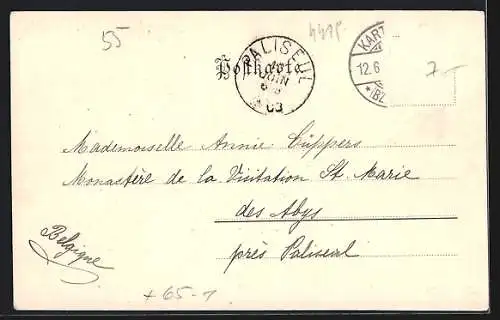 55
4415
Postkarte
PALISEUL
JUIN
03
KART
12.6
*(BZ
7-
Mademoiselle Annie Cüppers
Monastère de la Visitation St. Marie
des Abys
près Paliseul
Belgique
+65-1